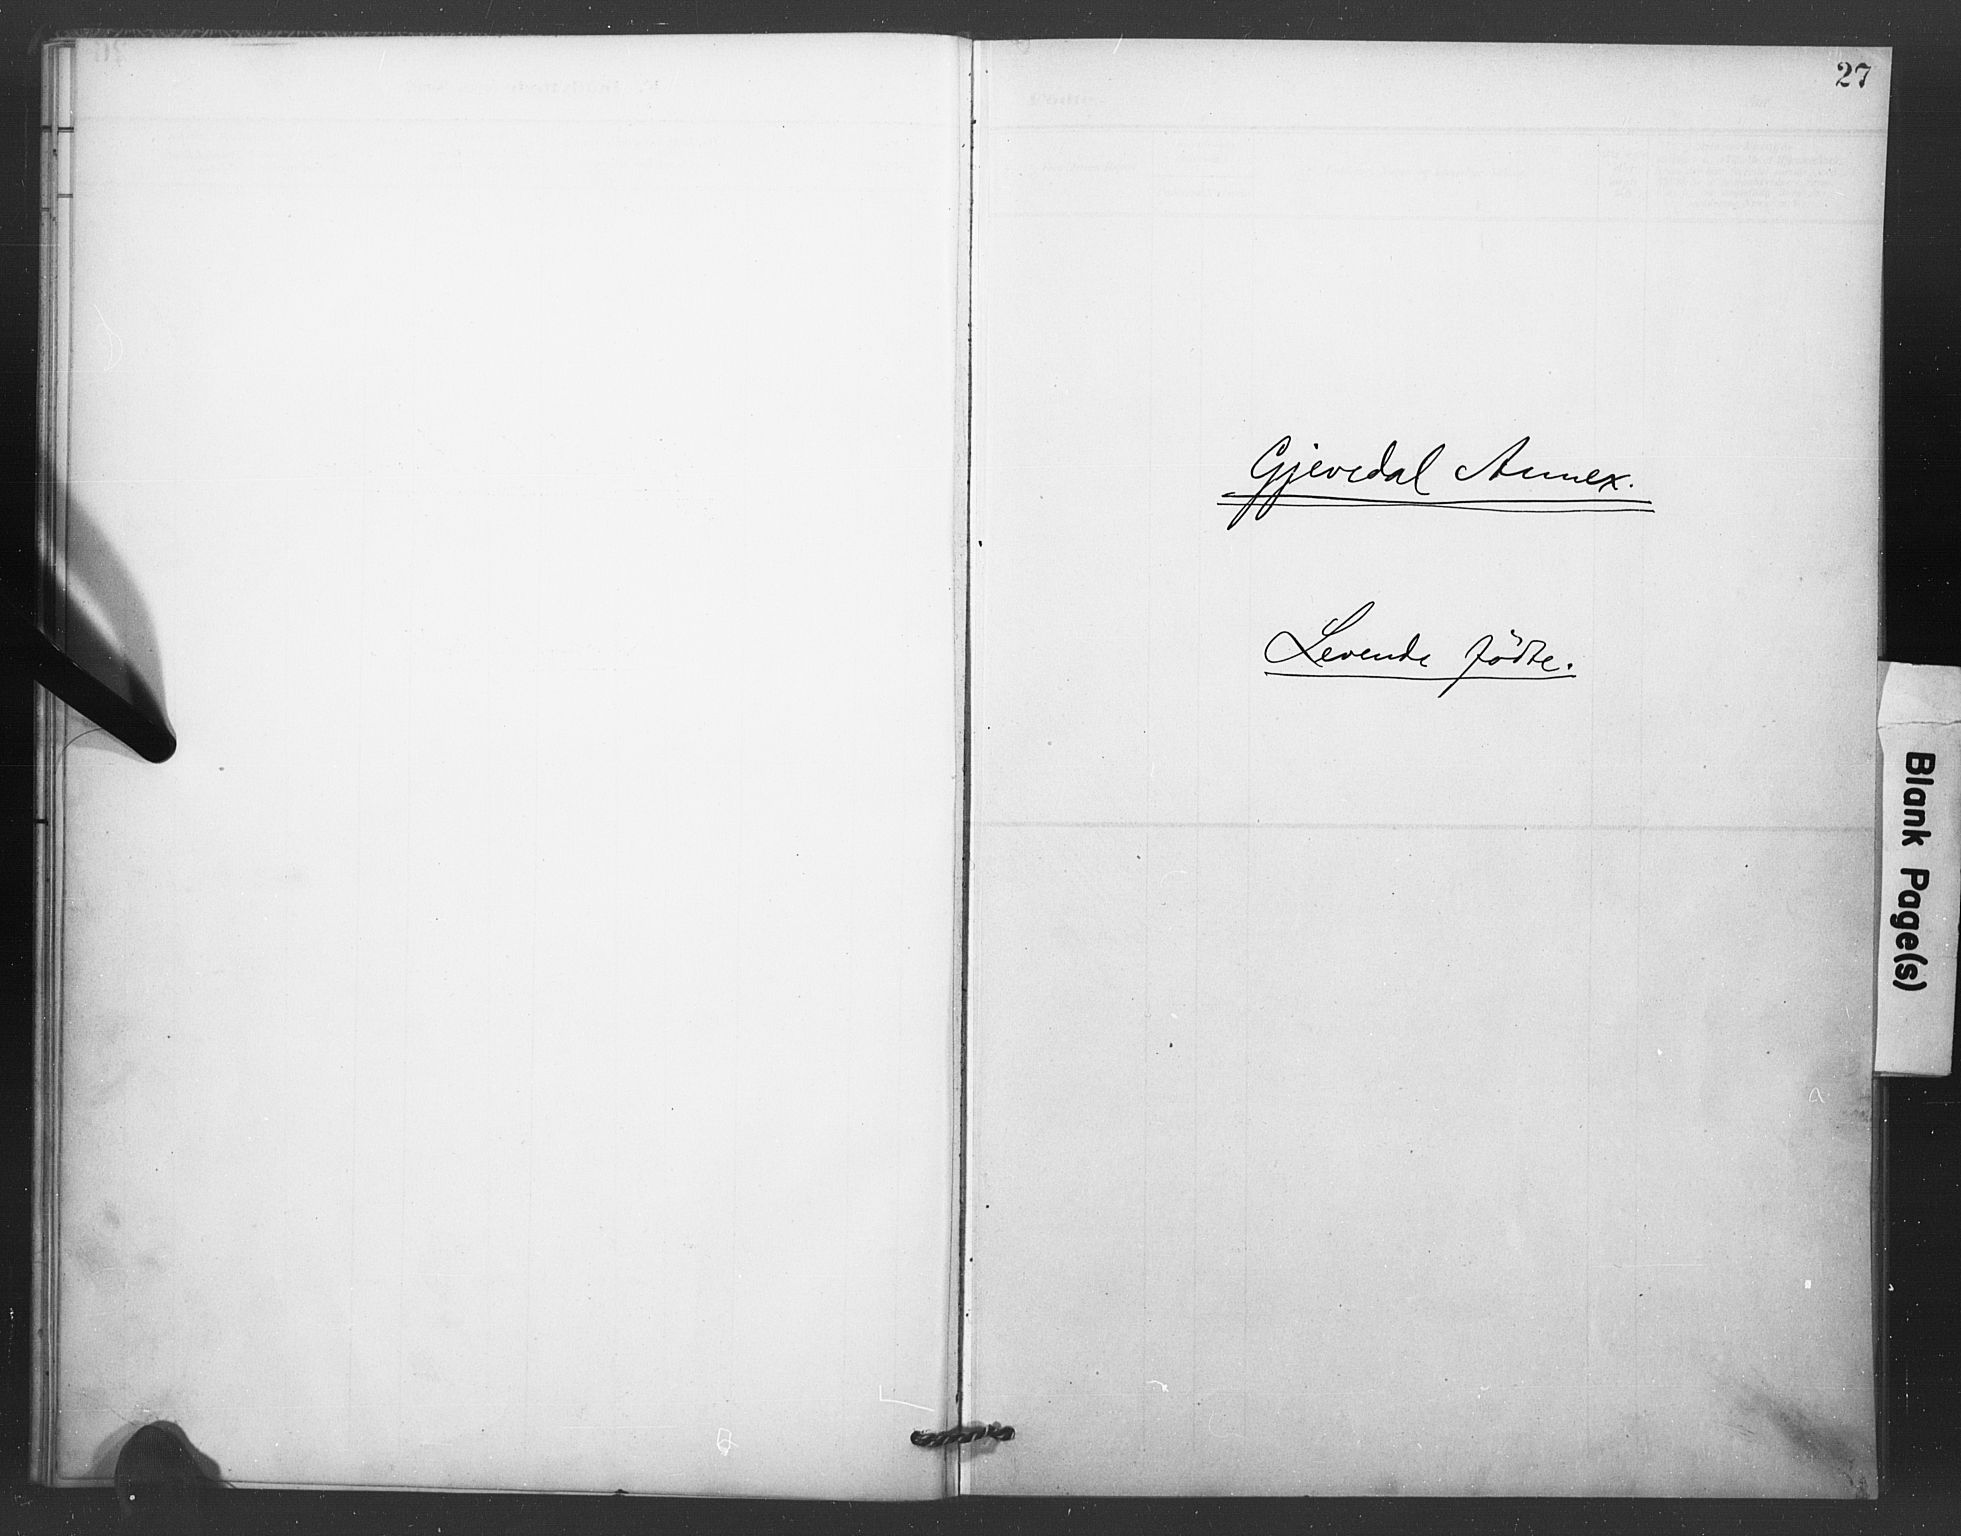 27
Gjevedal Annex.
Levende födte.
Blank Page(s)